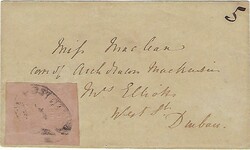 5
Miss Maclean
care of Arch Deacon Mackenzie
Mrs Elliott
West St
Durban